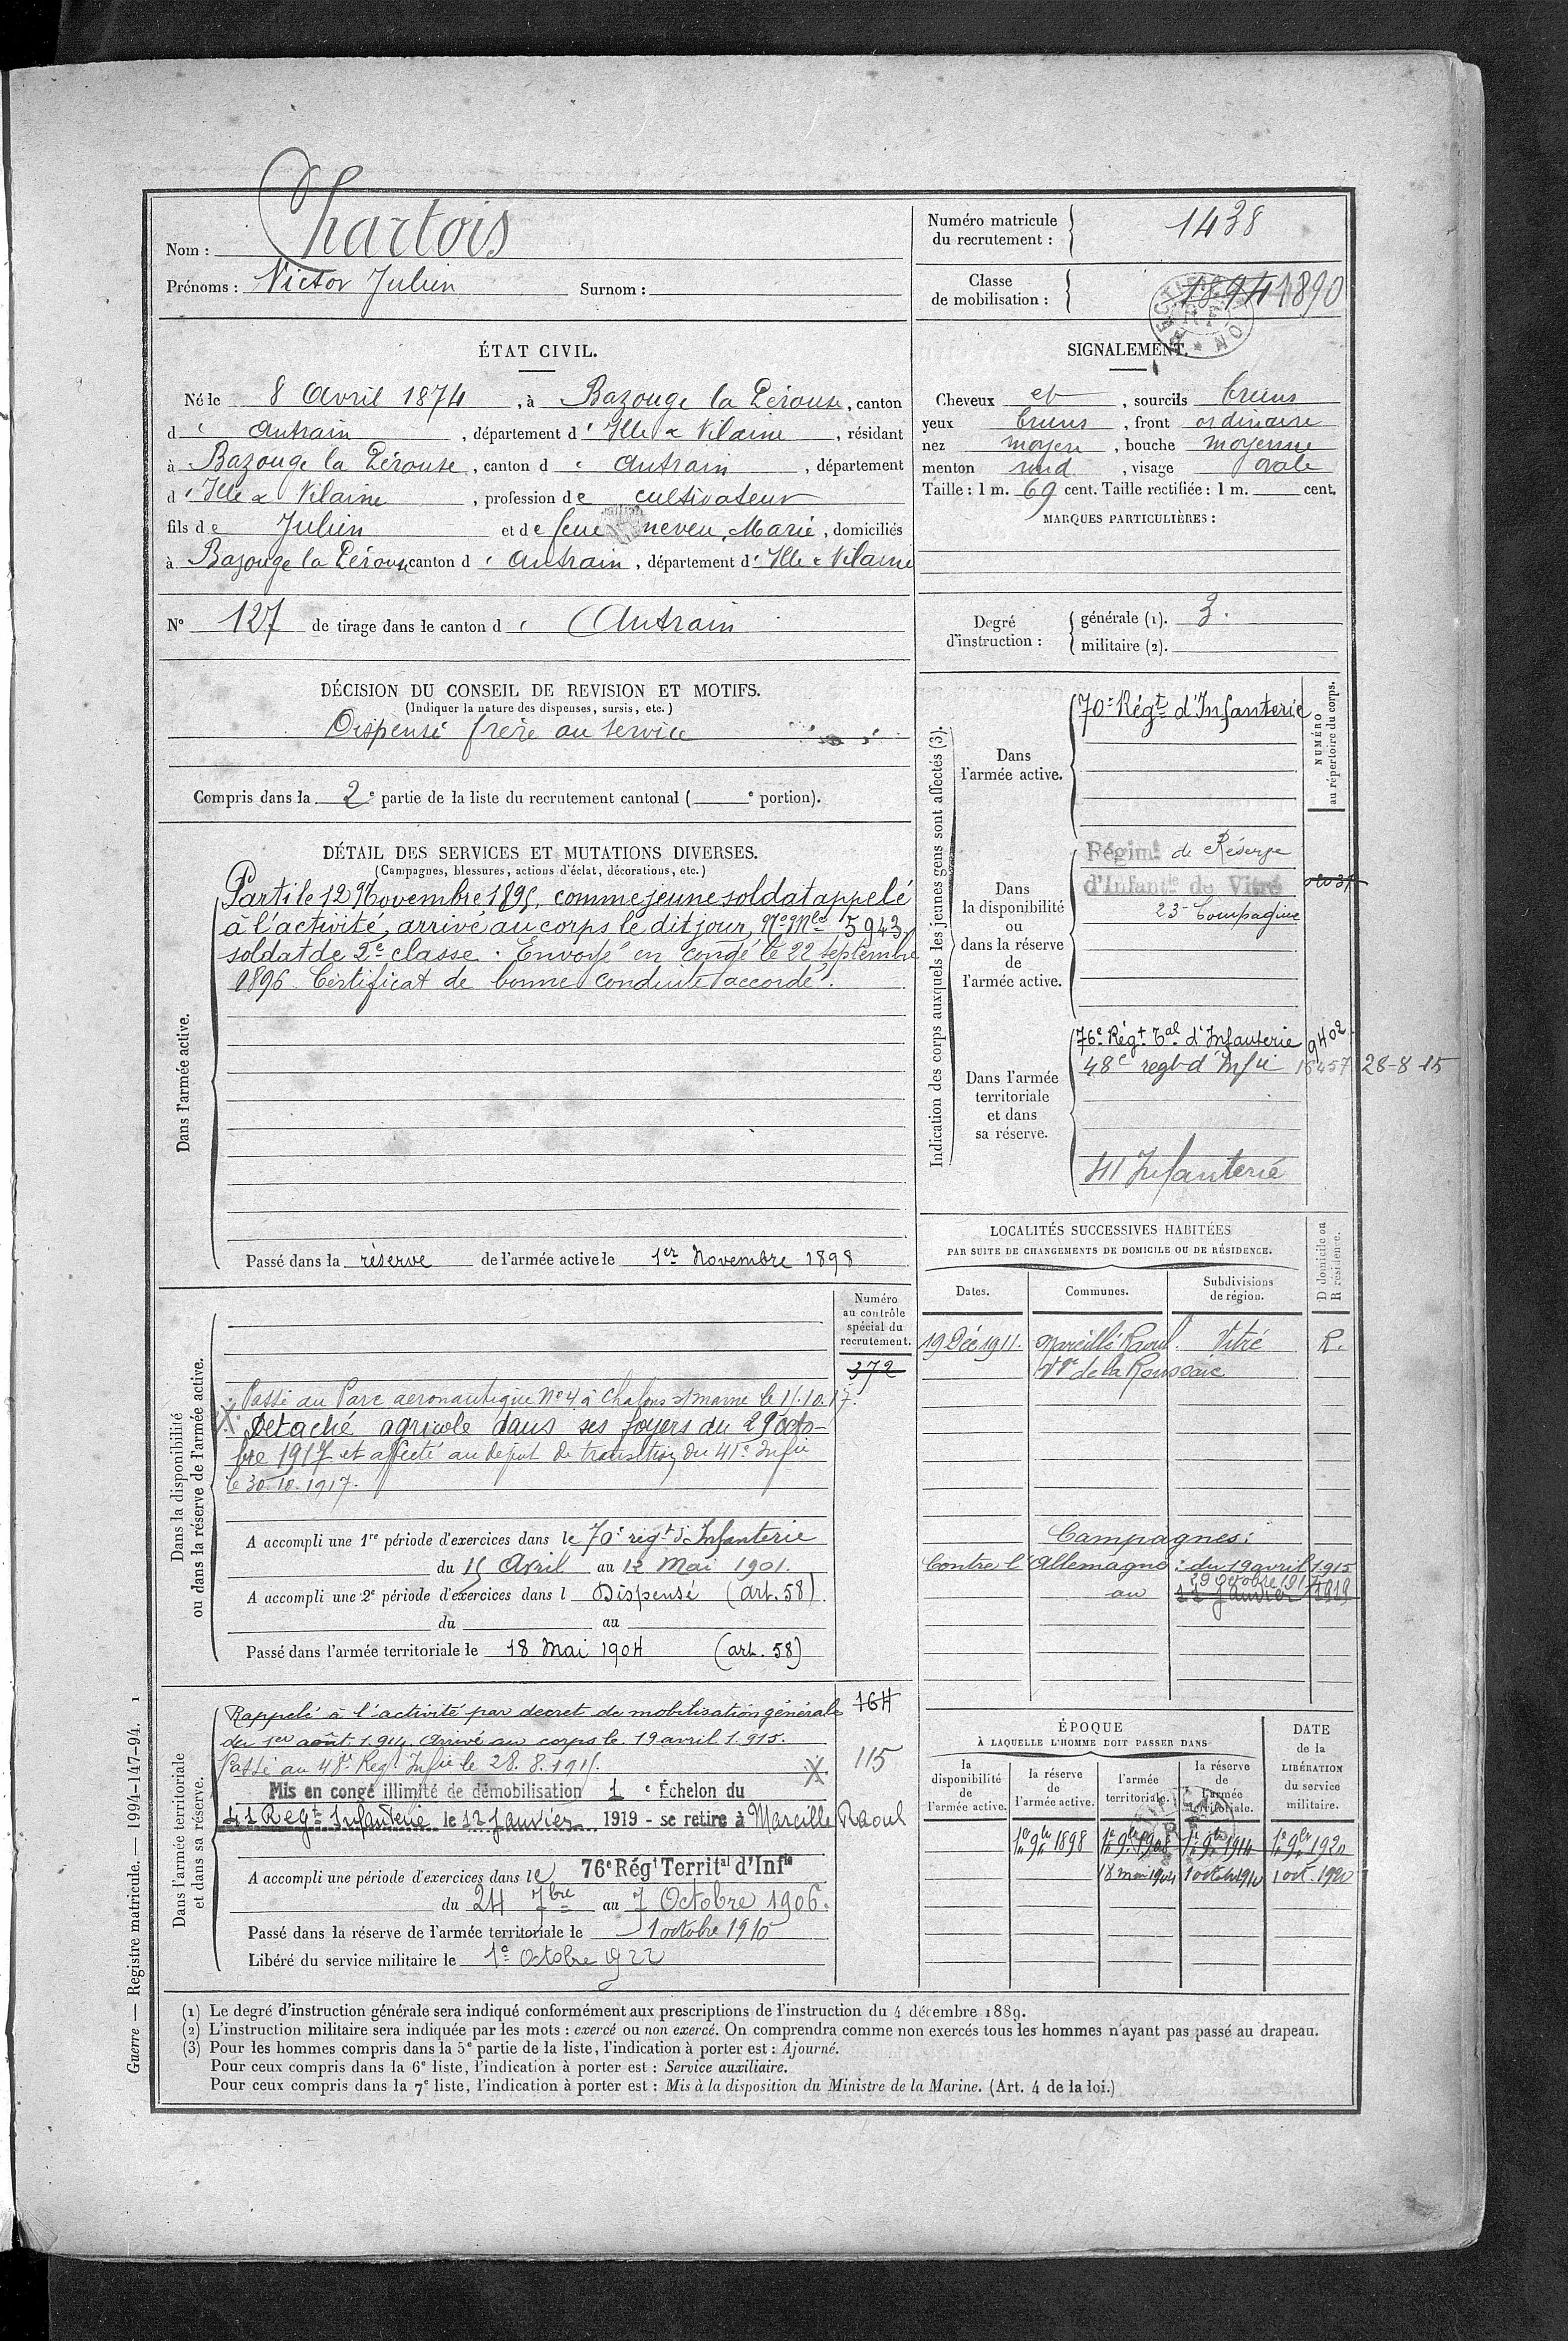 Nom : Chartois
Prénoms : Victor Julien Surnom :
Numéro matricule du recrutement : 1438
Classe de mobilisation : 1894 1890
ÉTAT CIVIL.
Né le 8 Avril 1874, à Bazouge la Pérouse, canton
d'Antrain, département d'Ille & Vilaine, résidant
à Bazouge la Pérouse, canton d'Antrain, département
d'Ille & Vilaine, profession de cultivateur
fils de Julien et de feue neveu, Marie, domiciliés
à Bazouge la Pérouse canton d'Antrain, département d'Ille & Vilaine
N° 127 de tirage dans le canton d'Antrain
SIGNALEMENT.
Cheveux et, sourcils bruns
yeux bruns, front ordinaire
nez moyen, bouche moyenne
menton rond, visage ovale
Taille : 1 m. 69 cent. Taille rectifiée : 1 m. cent.
MARQUES PARTICULIÈRES :
Degré d'instruction : générale (1). 3.
militaire (2).
DÉCISION DU CONSEIL DE REVISION ET MOTIFS.
(Indiquer la nature des dispenses, sursis, etc.)
Dispensé frère au service
Compris dans la 2e partie de la liste du recrutement cantonal ( e portion).
DÉTAIL DES SERVICES ET MUTATIONS DIVERSES.
(Campagnes, blessures, actions d'éclat, décorations, etc.)
Dans l'armée active.
Parti le 12 Novembre 1895, comme jeune soldat appelé
à l'activité, arrivé au corps le dit jour, No Mle 5943,
soldat de 2e classe. Envoyé en congé le 22 septembre
1896. Certificat de bonne conduite accordé.
Passé dans la réserve de l'armée active le 1er Novembre 1898
Indication des corps auxquels les jeunes gens sont affectés (3).
NUMÉRO au répertoire du corps.
Dans l'armée active.
70e Régt d'Infanterie
Dans la disponibilité ou dans la réserve de l'armée active.
Régimt de Réserve
d'Infantie de Vitré
23e Compagnie
Dans l'armée territoriale et dans sa réserve.
76e Régt Tal d'Infanterie 9402
48e regt d'Infie 16457 28-8-15
41 Infanterie
LOCALITÉS SUCCESSIVES HABITÉES
PAR SUITE DE CHANGEMENTS DE DOMICILE OU DE RÉSIDENCE.
Dates. Communes. Subdivisions de région. D domicile ou R résidence.
19 Déc 1911. Marcillé Raoul. Vitré R.
Campagnes :
Contre l'Allemagne : du 19 avril 1915
29 octobre 1917
au 12 Janvier 1919
Dans la disponibilité ou dans la réserve de l'armée active.
Numéro au contrôle spécial du recrutement.
372
Passé au Parc aeronautique No 4 à Chalons s/marne le 11.10.17.
X Detaché agricole dans ses foyers du 29 octo-
bre 1917 et affecté au depot de transition du 41e Infie
le 30.10.1917.
A accompli une 1re période d'exercices dans le 70e régt d'Infanterie
du 15 Avril au 12 Mai 1901.
A accompli une 2e période d'exercices dans l Dispensé (art. 58)
du au
Passé dans l'armée territoriale le 18 Mai 1904 (art. 58)
Dans l'armée territoriale et dans sa réserve.
Rappelé à l'activité par decret de mobilisation générale 164
du 1er août 1.914. Arrivé au corps le 19 avril 1.915.
Passé au 48e Regt Infie le 28.8.1915. X 115
Mis en congé illimité de démobilisation 1 e Échelon du
41 Regt Infanterie le 12 Janvier 1919 - se retire à Marcillé Raoul
A accompli une période d'exercices dans le 76e Régt Territal d'Infie
du 24 7bre au 7 Octobre 1906.
Passé dans la réserve de l'armée territoriale le 1 octobre 1910
Libéré du service militaire le 1er Octobre 1922
ÉPOQUE
À LAQUELLE L'HOMME DOIT PASSER DANS
la disponibilité de l'armée active. la réserve de l'armée active. l'armée territoriale. la réserve de l'armée territoriale. DATE de la LIBÉRATION du service militaire.
1er 9bre 1898 1er 9bre 1908 1er 9bre 1914 1er 9bre 1920
18 mai 1904 1 octobre 1910 1 oct. 1920
(1) Le degré d'instruction générale sera indiqué conformément aux prescriptions de l'instruction du 4 décembre 1889.
(2) L'instruction militaire sera indiquée par les mots : exercé ou non exercé. On comprendra comme non exercés tous les hommes n'ayant pas passé au drapeau.
(3) Pour les hommes compris dans la 5e partie de la liste, l'indication à porter est : Ajourné.
Pour ceux compris dans la 6e liste, l'indication à porter est : Service auxiliaire.
Pour ceux compris dans la 7e liste, l'indication à porter est : Mis à la disposition du Ministre de la Marine. (Art. 4 de la loi.)
Guerre — Registre matricule. — 1994-147-94. 1